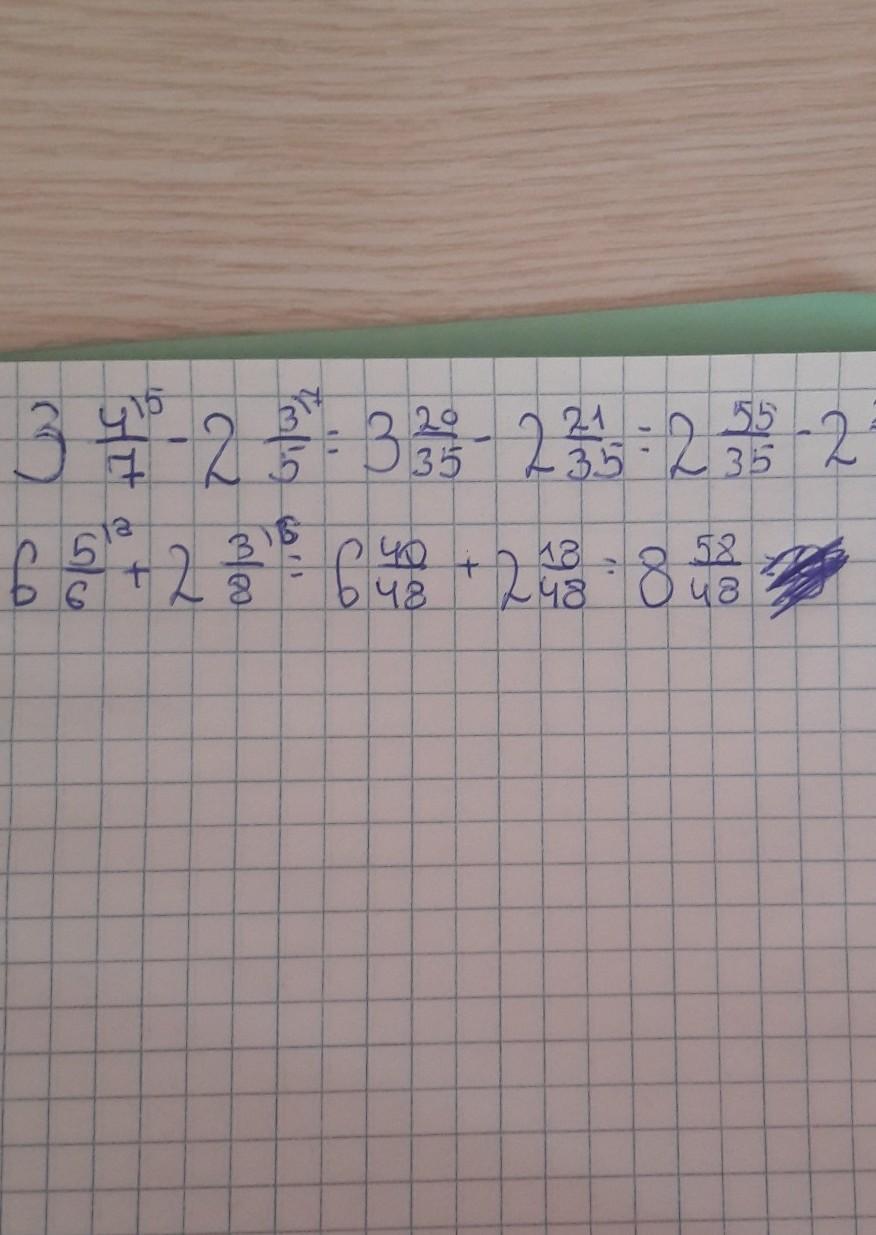 3 4/7 \5 - 2 3/5 \7 = 3 20/35 - 2 21/35 = 2 55/35 - 2
6 5/6 \8 + 2 3/8 \6 = 6 40/48 + 2 18/48 = 8 58/48